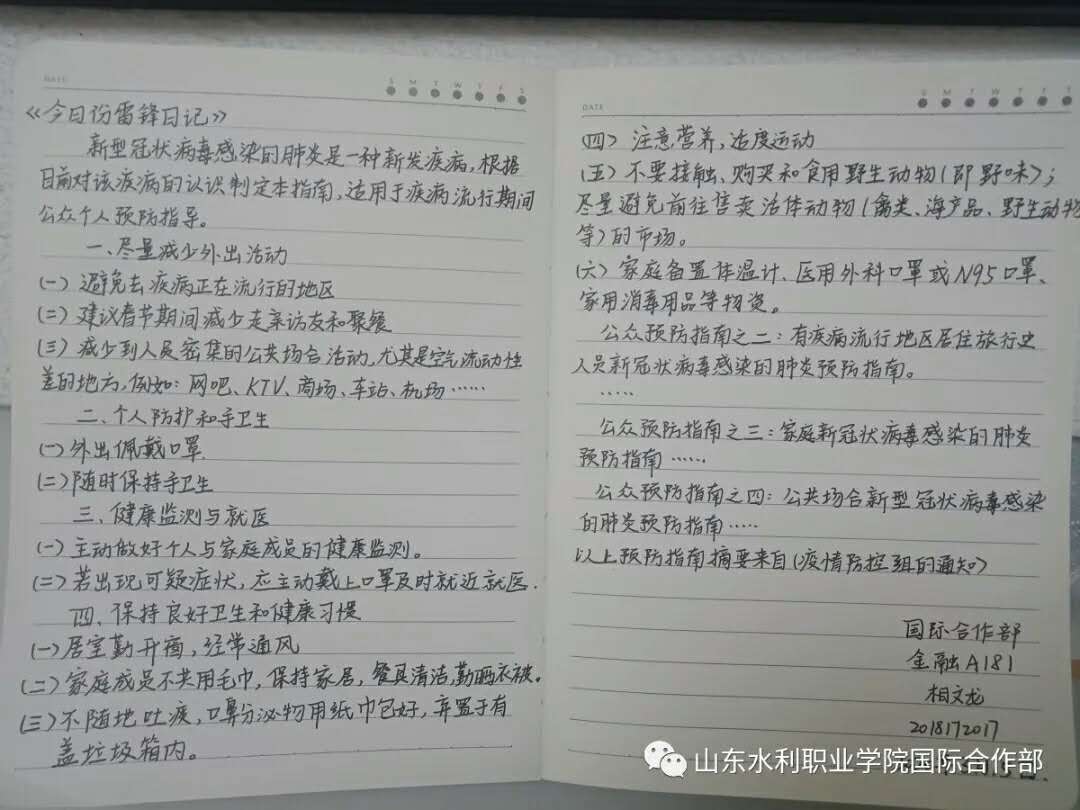 DATE
S M T W T F S
《今日份雷锋日记》
新型冠状病毒感染的肺炎是一种新发疾病,根据
目前对该疾病的认识制定本指南,适用于疾病流行期间
公众个人预防指导。
一、尽量减少外出活动
(一)避免去疾病正在流行的地区
(二)建议春节期间减少走亲访友和聚餐
(三)减少到人员密集的公共场合活动,尤其是空气流动性
差的地方,例如:网吧、KTV、商场、车站、机场……
二、个人防护和手卫生
(一)外出佩戴口罩.
(二)随时保持手卫生
三、健康监测与就医
(一)主动做好个人与家庭成员的健康监测。
(二)若出现可疑症状,应主动戴上口罩及时就近就医.
四、保持良好卫生和健康习惯
(一)居室勤开窗,经常通风
(二)家庭成员不共用毛巾,保持家居,餐具清洁,勤晒衣被。
(三)不随地吐痰,口鼻分泌物用纸巾包好,弃置于有
盖垃圾箱内。
DATE
S M T W T F S
(四)注意营养,适度运动
(五)不要接触、购买和食用野生动物(即野味);
尽量避免前往售卖活体动物(禽类、海产品、野生动物
等)的市场。
(六)家庭备置体温计、医用外科口罩或N95口罩、
家用消毒用品等物资。
公众预防指南之二:有疾病流行地区居住旅行史
人员新冠状病毒感染的肺炎预防指南。
……
公众预防指南之三:家庭新冠状病毒感染的肺炎
预防指南……
公众预防指南之四:公共场合新型冠状病毒感染
的肺炎预防指南……
以上预防指南摘要来自(疫情防控组的通知)
国际合作部
金融A181
相文龙
2018172017
山东水利职业学院国际合作部